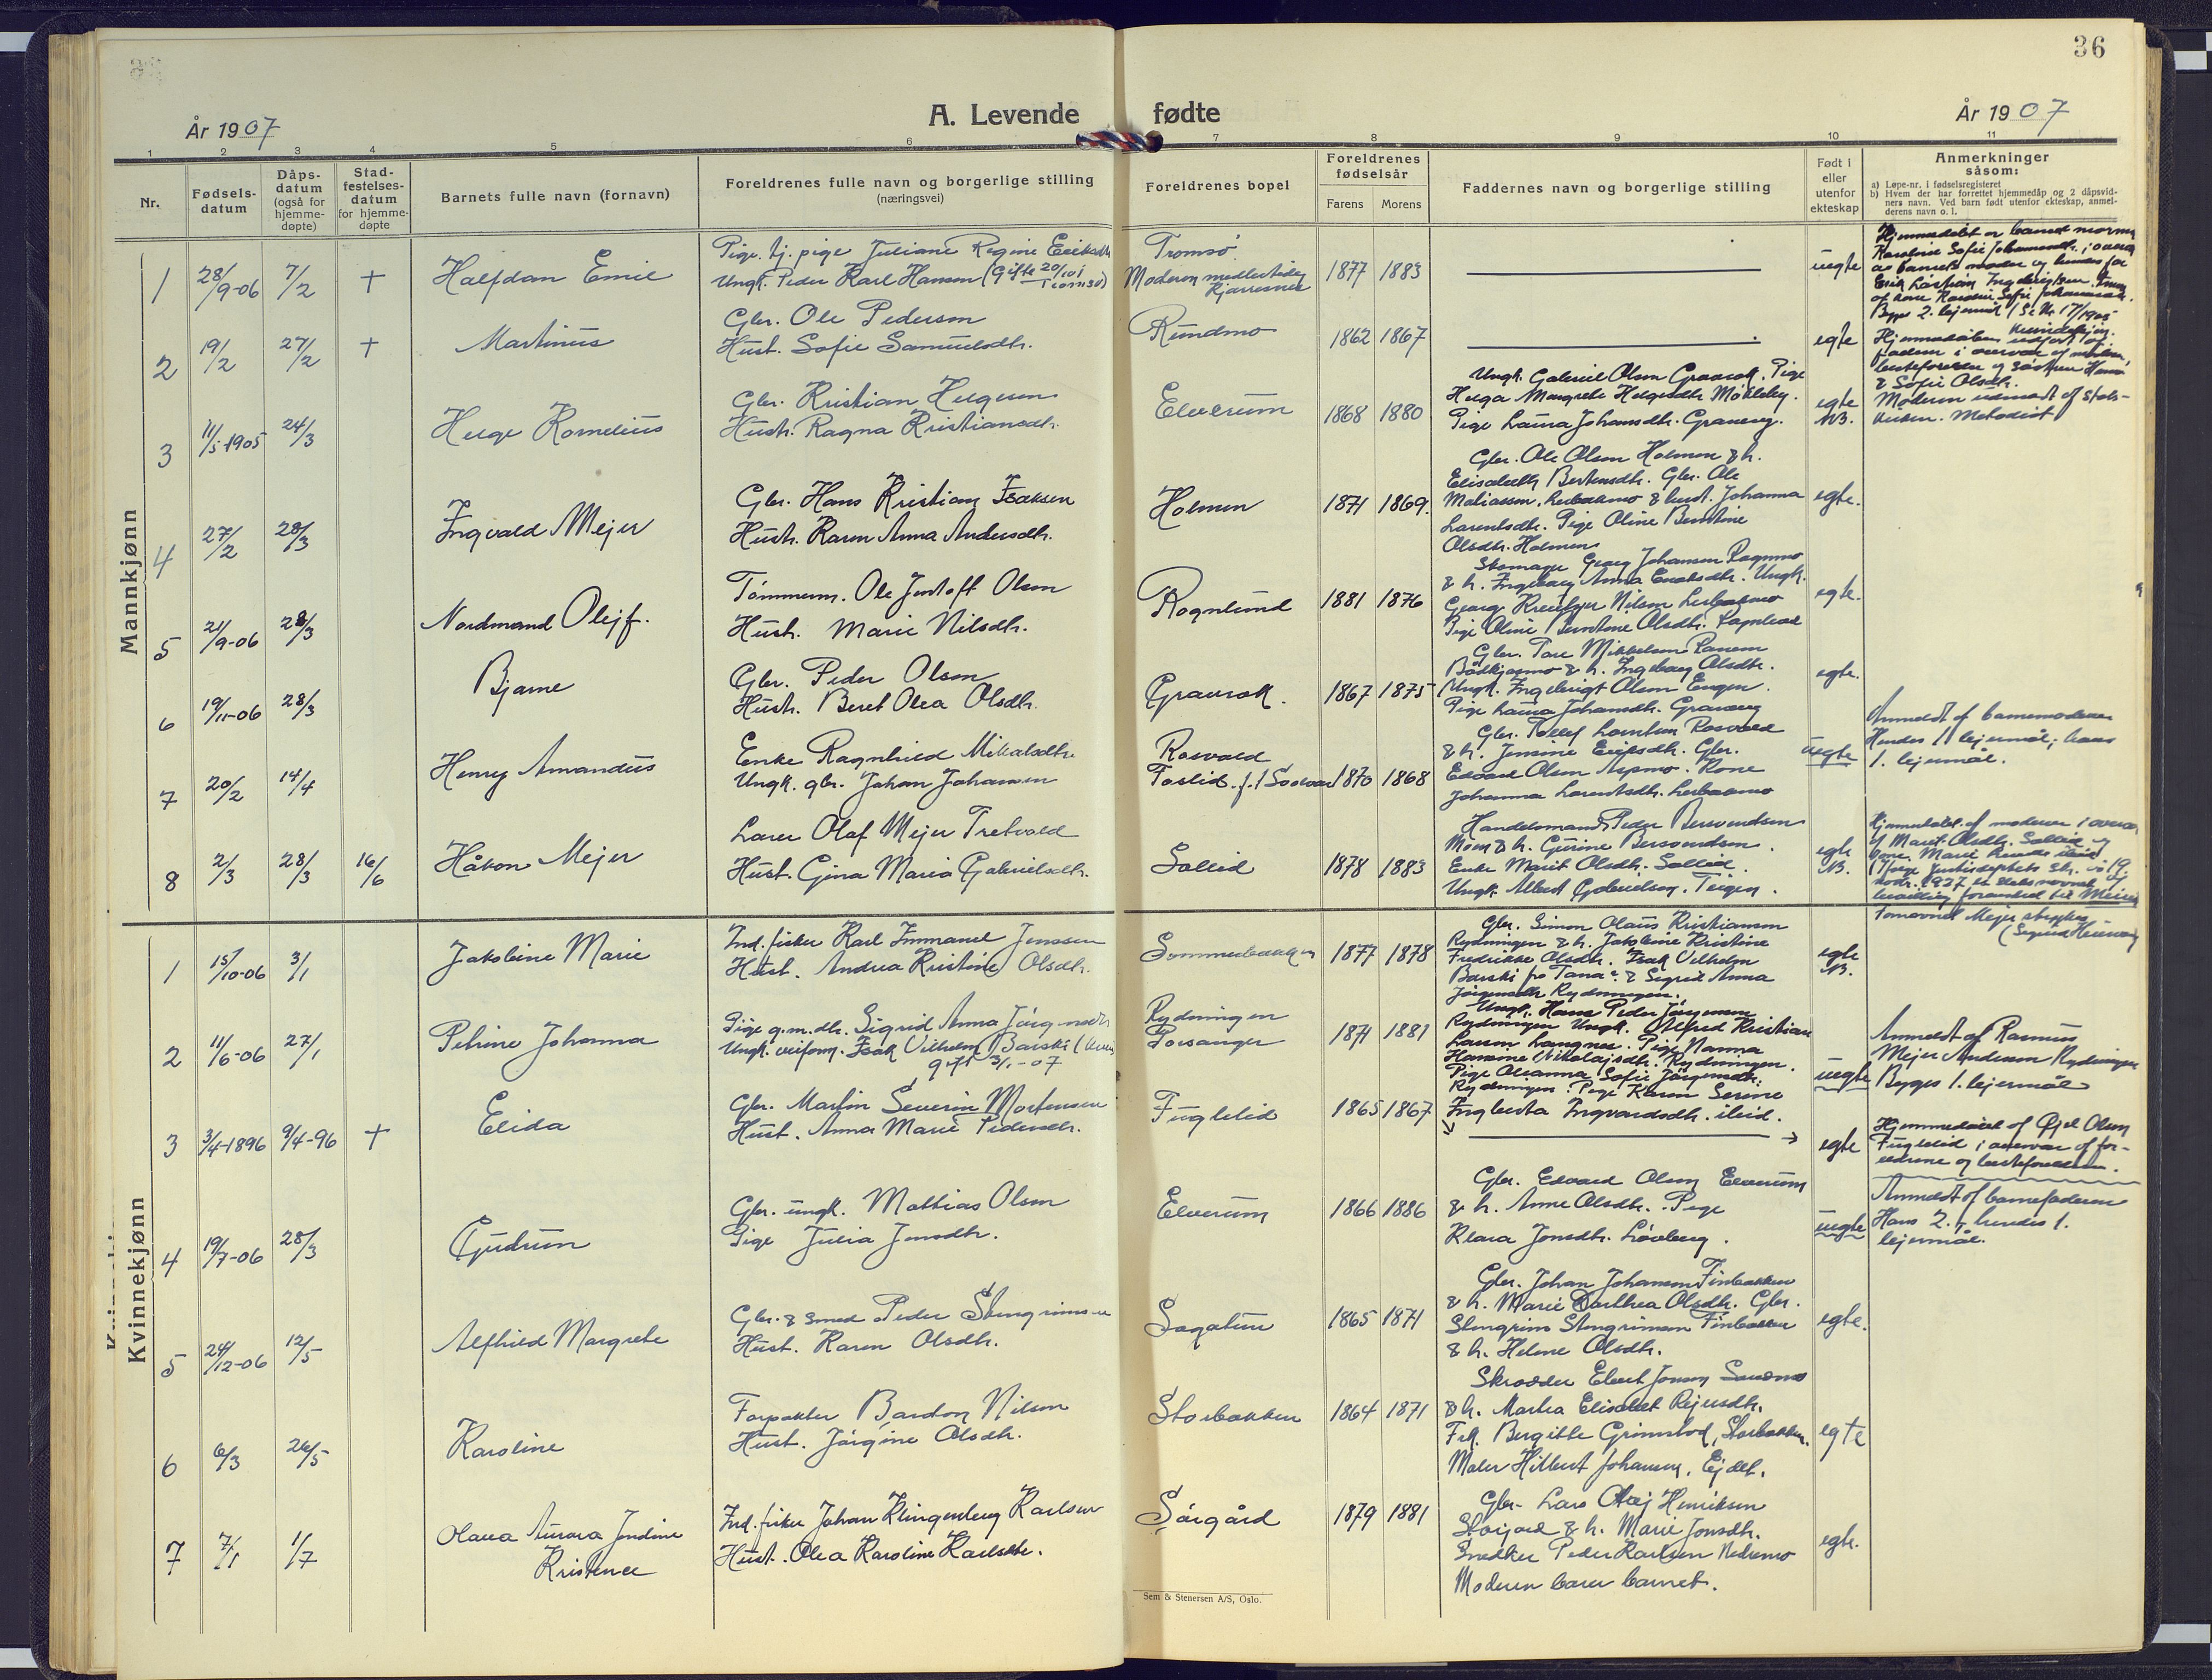 36
År 1907
A. Levende fødte
År 1907
1 2 3 4 5 6 7 8 9 10 11
Nr.
Fødsels-datum
Dåps-datum (også for hjemme-døpte)
Stad-festelses-datum for hjemme-døpte
Barnets fulle navn (fornavn)
Foreldrenes fulle navn og borgerlige stilling (næringsvei)
Foreldrenes bopel
Foreldrenes fødselsår
Farens
Morens
Faddernes navn og borgerlige stilling
Født i eller utenfor ekteskap
Anmerkninger såsom:
a) Løpe-nr. i fødselsregisteret
b) Hvem der har forrettet hjemmedåp og 2 dåpsvid-
ners navn. Ved barn født utenfor ekteskap, anmel-
derens navn o. l.
Mannkjønn
1 28/9-06 7/2 + Halfdan Emil
Pige. tj. pige Juliane Regine
Ungk. Peder Karl Hansen (Gifte 20/10 i Tromsø)
Tromsø
Moderen
1877 1883
uegte
2 19/2 27/2 + Martinus
Gbr. Ole Pedersen
Hust. Sofie Samuelsdtr.
Rundmo
1862 1867
egte
& Sofie Olsdtr.
3 11/5-1905 24/3 Helge Kornelius
Gbr. Kristian Helgesen
Hustr. Ragna Kristiansdtr.
Elverum
1868 1880
Ungk. Gabriel Olsen Pige
Helga Margrete Helgesdtr.
Pige Laura Johansdtr.
egte NB.
Moderen udmeldt af stats-
kirken. Metodist
4 27/2 28/3 Ingvald Mejer
Gbr. Hans Kristian Isaksen
Hustr. Karen Anna Andersdtr.
Holmen
1871 1869.
Gbr. Ole Olsen Holmen & h.
Elisabeth Berntsdtr. Gbr. Ole
& hust. Johanna
Larentsdtr. Pige Oline Berntine
Olsdtr. Holmen
egte.
5 21/9-06 28/3 Nordmand Olejf.
Tømmerm. Ole Jentoft Olsen
Hustr. Marie Nilsdtr.
Rognlund
1881 1876
Skomager Georg Johansen Rognmo
& h. Ingeborg Anna Ungk.
Georg Nilsen
Pige Oline Berntine Olsdtr.
egte.
6 19/11-06 28/3 Bjarne
Gbr. Peder Olsen
Hustr. Beret Olea Olsdtr.
Gravrok.
1867 1875
Gbr. Tore Mikkelsen
& h. Ingeborg Olsdtr.
Ungk. Ingebrigt Olsen Engen.
Pige Laura Johansdtr.
egte.
7 20/2 14/4 Henry Amandus
Enke Ragnhild Mikalsdtr.
Ungk. gbr. Johan Johansen
Rosvold
1870 1868
Gbr. Tollef Larntsen Rosvold
& h. Jensine Eriksdtr. Gbr.
Edvard Olsen Aspmo. Kone
Johanna Larentsdtr.
uegte
Anmeldt af barnemoderen
Hendes 1 lejermål; hans
1. lejermål.
8 2/3 28/3 16/6 Håkon Mejer
Lærer Olaf Mejer Tretvold
Hust. Gina Maria Gabrielsdtr.
Sollid
1878 1883
Handelsmand Peder Bersvendsen
Moen & h. Gurine Bersvendsen.
Enke Marit Olsdtr. Sollid.
Ungk. Albert Gabrielsen. Teigen.
egte NB.
Kvinnekjønn
1 15/10-06 3/1 Jakobine Marie
Ind. fisker Karl Immanuel Jenssen
Hust. Andrea Kristine Olsdtr.
Sommerbakken
1877 1878
Gbr. Simon Olaus Kristiansen
Rydningen & h. Jakobine Kristine
Fredrikke Olsdtr. Isak Vilhelm
Baiski fra Tana & Sigrid Anna
Jørgensdtr Rydningen.
egte NB.
2 11/6-06 27/1 Petrine Johanna
Pige g.m.dtr. Sigrid Anna Jørgensdtr
Ungk. Isak Vilhelm Baiski
gift 3/1-07
Rydningen
Porsanger
1871 1881
Ungk. Hans Peder Jørgensen
Rydningen Ungk. Alfred Kristian
Larsen Langnes. Pige Nanna
Hansine Nikolajsdtr. Rydningen.
Pige Oleanna Sofie Jørgensdtr.
Rydningen. Pige Karen Serine
Ingberta Ingvardsdtr. ibid.
uegte
Anmeldt af Rasmus
Mejer Andersen Rydningen
Begges 1. lejermål
3 3/4-1896 9/4-96 + Elida
Gbr. Martin Severin Mortensen
Hust. Anna Marie Pedersdtr.
Fuglelid
1865 1867
egte
Hjemmedøbt af Ojel Olsen
Fuglelid i overvær af for-
ældrene og besteforældrene.
4 19/7-06 28/3 Gudrun
Gbr. ungk. Mathias Olsen
Pige Julia Jensdtr.
Elverum
1866 1886
Gbr. Edvard Olsen Elverum
& h. Anne Olsdtr. Pige
Klara Jonsdtr. Løvberg.
uegte
Anmeldt af barnefaderen
Hans 2. & hendes 1.
lejermål.
5 24/12-06 12/5 Alfhild Margrete
Gbr. & smed Peder Stengrimsen
Hust. Karen Olsdtr.
Sagatun
1865 1871
Gbr. Johan Johansen Finbakken
& h. Marie Dorthea Olsdtr. Gbr.
Stengrim Stengrimsen Finbakken
& h. Helene Olsdtr.
egte.
6 6/3 26/5 Karoline
Forpakter Bardon Nilsen
Hust. Jørgine Olsdtr.
Storbakken
1864 1871
Skrædder Elert Jensen
& h. Marta Elisabet Rejersdtr.
Frk. Bergitte Grimstod, Storbakken.
Maler Hilbert Johansen, Ejdet.
egte
7 7/1 1/7 Olava Aurora Jendine
Kristence
Ind. fisker Johan Klingenberg Karlsen
Hust. Olea Karoline Karlsdtr.
Sørgård
1879 1881
Gbr. Lars Olaj Henriksen
& h. Marie Jonsdtr.
Snedker Peder Karlsen Nedremo
Moderen barer barnet.
egte.
Sem & Stenersen A/S, Oslo.